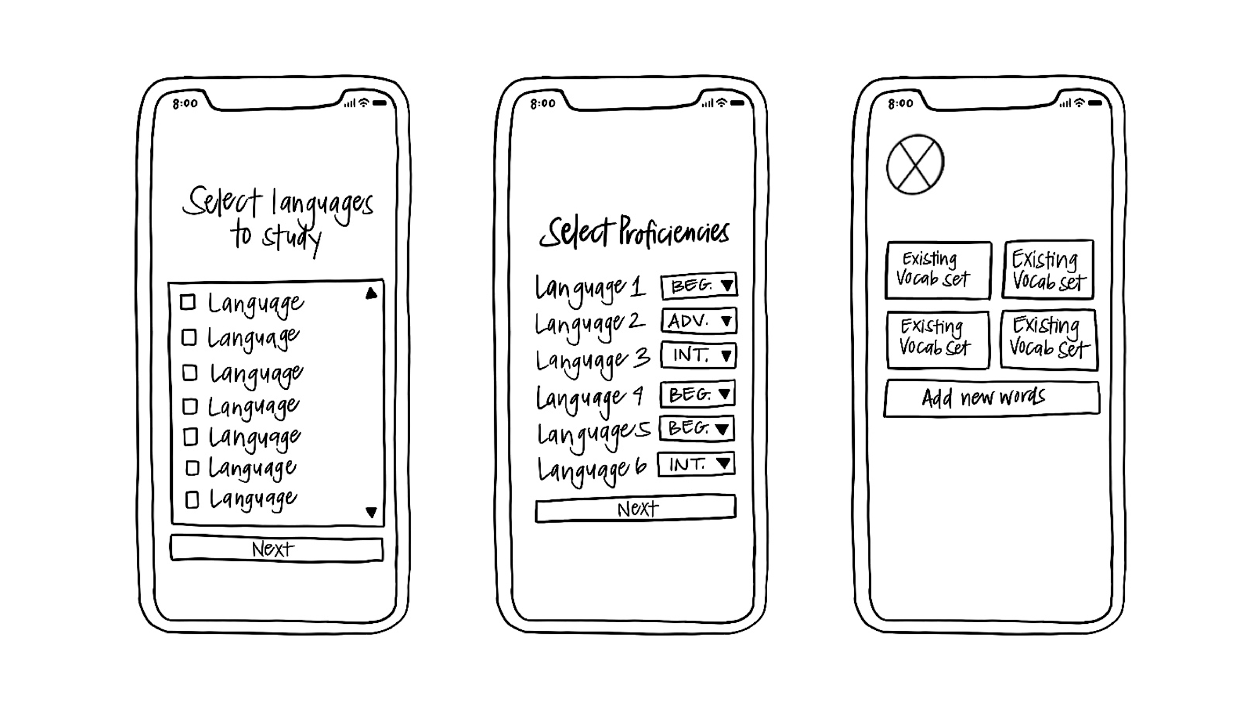 8:00
Select languages
to study
Language
Language
Language
Language
Language
Language
Language
Next
8:00
Select Proficiencies
Language 1 BEG.
Language 2 ADV.
Language 3 INT.
Language 4 BEG.
Language 5 BEG.
Language 6 INT.
Next
8:00
Existing
Vocab set
Existing
Vocab set
Existing
Vocab set
Existing
Vocab set
Add new words